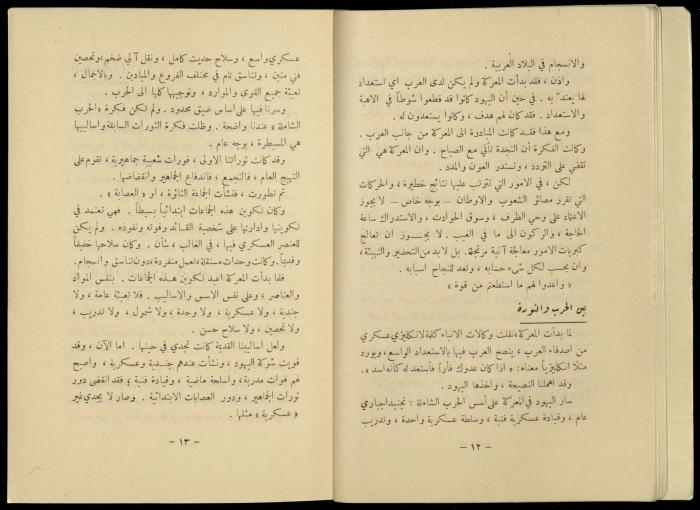 والانسجام في البلاد العربية .
واذن ، فقد بدأت المعركة ولم يكن لدى العرب اي استعداد
لها يعتدّ به . في حين أن اليهود كانوا قد قطعوا شوطاً في الاهبة
والاستعداد . فقد كان لهم هدف ، وكانوا يستعدون له .
ومع هذا فقد كانت المبادرة الى المعركة من جانب العرب .
وكانت الفكرة أن النجدة تأتي مع الصياح . وان المعركة هي التي
تقضي على التردد ، وتستدر العون والمدد .
لكن ، في الامور التي تترتب عليها نتائج خطيرة ، والحركات
التي تقرر مصائر الشعوب والاوطان – بوجه خاص – لا يجوز
الاعتماد على وحي الظرف ، وسوق الحوادث ، والاستدراك ساعة
الحاجة ، والركون الى ما في الغيب . لا يجوز ان تعالج
كبريات الامور معالجة آنية مرتجلة . بل لا بد من التحضير والتهيئة ،
وان يحسب لكل شيء حسابه ، وتعد للنجاح اسبابه .
« واعدوا لهم ما استطعتم من قوة »
بين الحرب والثورة
لما بدأت المعركة ، نقلت وكالات الانباء كلمة لانكليزي عسكري
من أصدقاء العرب ، ينصح العرب فيها بالاستعداد الواسع ، ويورد
مثلاً انكليزياً معناه : « اذا كان عدوك فأراً فاستعد له كأنه أسد » .
وقد اهملنا النصيحة ، واخذها اليهود .
سار اليهود في المعركة على أسس الحرب الشاملة : تجنيد اجباري
عام ، وقيادة عسكرية فنية ، وسلطة عسكرية واحدة ، وتدريب
– ١٢ –
عسكري واسع ، وسلاح حديث كامل ، ونقل آلي ضخم ، وتحصين
فني متين ، وتناسق تام في مختلف الفروع والميادين . وبالاجمال ،
تعبئة جميع القوى والموارد ، وتوجيهها كلها الى الحرب .
وسرنا فيها على اساس ضيق محدود . ولم تكن فكرة « الحرب
الشاملة » عندنا واضحة . وظلت فكرة الثورات السابقة واساليبها
هي المسيطرة ، بوجه عام .
وقد كانت ثوراتنا الاولى ، فورات شعبية جماهيرية ، تقوم على
التهيج العام ، فالتجمع ، فاندفاع الجماهير وانقضاضها .
ثم تطورت ، فنشأت الجماعة الثائرة ، او « العصابة » .
وكان تكوين هذه الجماعات ابتدائياً بسيطاً . فهي تعتمد في
تكوينها وادارتها على شخصية القائد وقوته ونفوذه . ولم يكن
للعنصر العسكري فيها ، في الغالب ، شأن . وكان سلاحها خفيفاً
وفردياً . وكانت وحدات مستقلة ، تعمل منفردة ، دون تناسق وانسجام .
فلما بدأت المعركة اعيد تكوين هذه الجماعات . بنفس المواد
والعناصر ، وعلى نفس الاسس والاساليب . فلا تعبئة عامة ، ولا
جندية ، ولا عسكرية ، ولا وحدة ، ولا شمول ، ولا تدريب ،
ولا تحصين ، ولا سلاح حسن .
ولعل اساليبنا القديمة كانت تجدي في حينها . اما الآن ، وقد
قويت شوكة اليهود ، ونشأت عندهم جندية وعسكرية ، واصبح
لهم قوات مدربة ، واسلحة ماضية ، وقيادة فنية ؛ فقد انقضى دور
ثورات الجماهير ، ودور العصابات الابتدائية . وصار لا يجدي غير
« عسكرية » مثلها .
– ١٣ –